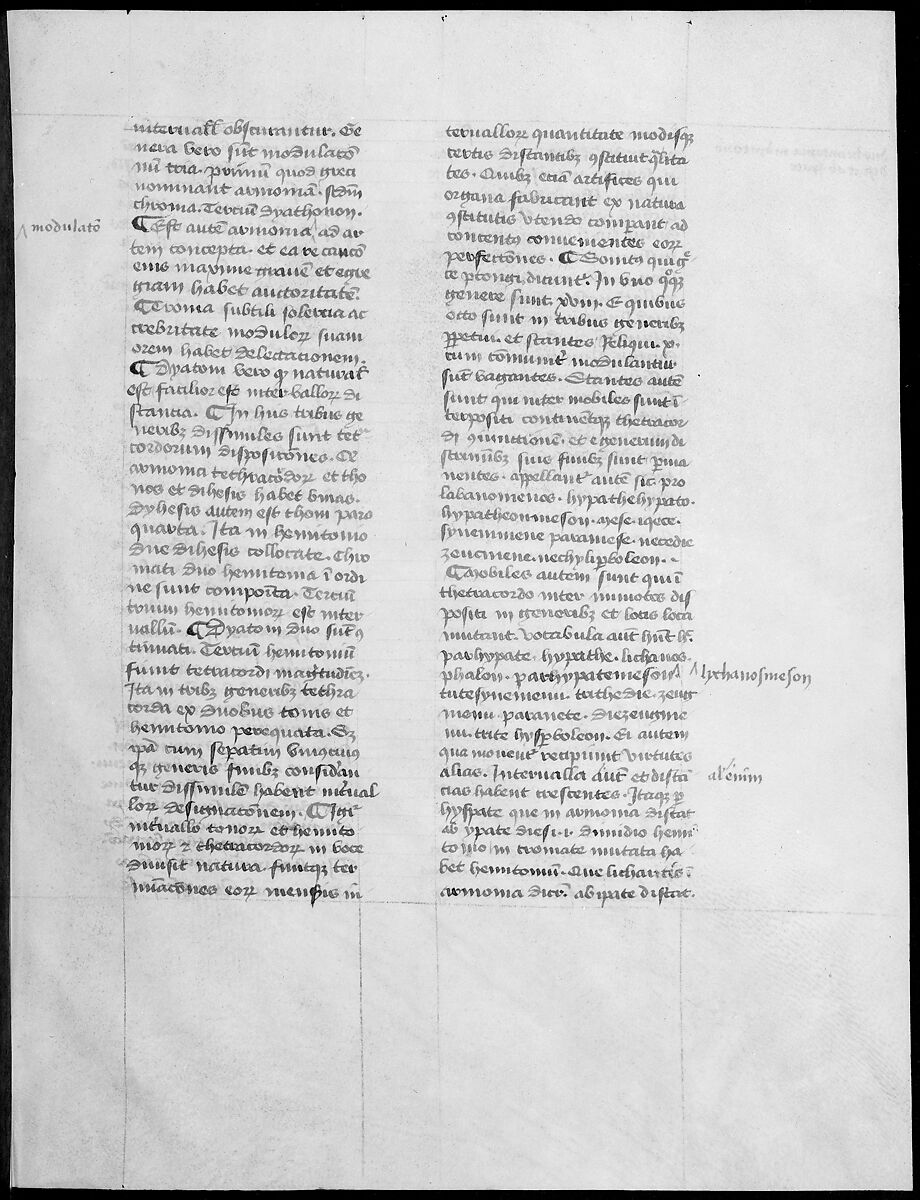 interuall obscurantur. Ge
nera vero sūt modulatōn
nū tria. primū quod greci
nominant armoniā. scdm
chroma. Tercium dyathonon.
¶ Est autē armonia ad ar
modulatō
tem concepta. et ea re cancō
eius maxime grauē et egre
giam habet auctoritatē.
¶ Croma subtili solercia ac
crebritate modulorꝝ suaui
orem habet delectationem.
¶ Dyatoni vero qꝫ natural
est facilior est interuallorꝝ di
stancia. ¶ In hiis tribus ge
neribꝫ dissimiles sunt tet
cordorum disposicōnes. Qꝫ
armonia tethracordorꝝ et tho
nos et dihesis habet binas.
Dyhesis autem est thoni pars
quarta. Ita in hemitonio
due dihesis collocate. Chro
mati duo hemitonia ī ordi
ne sunt composita. Terciū
trium hemitoniorꝝ est inter
uallū. ¶ Dyatoni duo sūt ꝯ
tinuati. Tercium hemitoniū
finiunt tetracordi magitudinē.
Ita in tribꝫ generibꝫ tethra
corda ex duobus tonis et
hemitonio perequata. Sꝫ
ipā cum sepatim vniuscuius
qꝫ generis finibꝫ considerā
tur dissimilē habent interual
lorꝝ designacōnem. ¶ Igīr
interuallo tonorꝝ et hemito
niorꝝ ⁊ thetracordorꝝ in voce
diuisit natura. finitqꝫ ter
minacōnes eorꝝ mensuris in
teruallorꝝ quantitate modisqꝫ
certis distantibꝫ ꝯstituit qlita
tes. Quibꝫ etiā artifices qui
organa fabricant ex natura
ꝯstitutis vtendo comparant ad
concentꝫ conuenientes eorꝝ
perfectiones. ¶ Sonitꝫ qui gre
ce ptongi dicunt. In vno qoqꝫ
genere sunt xviij. E quibus
octo sunt in tribus generibꝫ
ꝑpetui. et stantes. Reliqui x.
cum comuniter modulantur
sūt vagantes. Stantes autē
sunt qui inter mobiles sunt ī
terpositi continentqꝫ thetracor
di ꝯiunctionē. et e generum di
scriminibꝫ suis finibꝫ sunt ꝑma
nentes. appellant autē sic. pro
labanomenos. hypathehypato.
hypatheon meson. mese. iqece.
synemmene paramese. necedie
zeucmene. nechyliꝑboleon.
¶ Mobiles autem sunt qui ī
thetracordo inter inmotes dis
positi in generibꝫ et locis loca
mutant. vocabula aut hūt hec.
parhypate. hypathe. lichanos.
phalon. parhypatemeson
lychanosmeson
tritesynemenu. trithedie. zeug
menu. paranete. diezeugme
nu. trite hysꝑboleon. Ei autem
qua mouent recipiunt virtutes
alias. Interualla aut et distā
al' enim
cias habent crescentes. Itaqꝫ ꝑ
hyspate que in armonia distat
ab ypate diesi .i. dimidio hemi
tonio in cromate mutata ha
bet hemitonium. Que lichanos ī
armonia dicit. ab ipate distat.